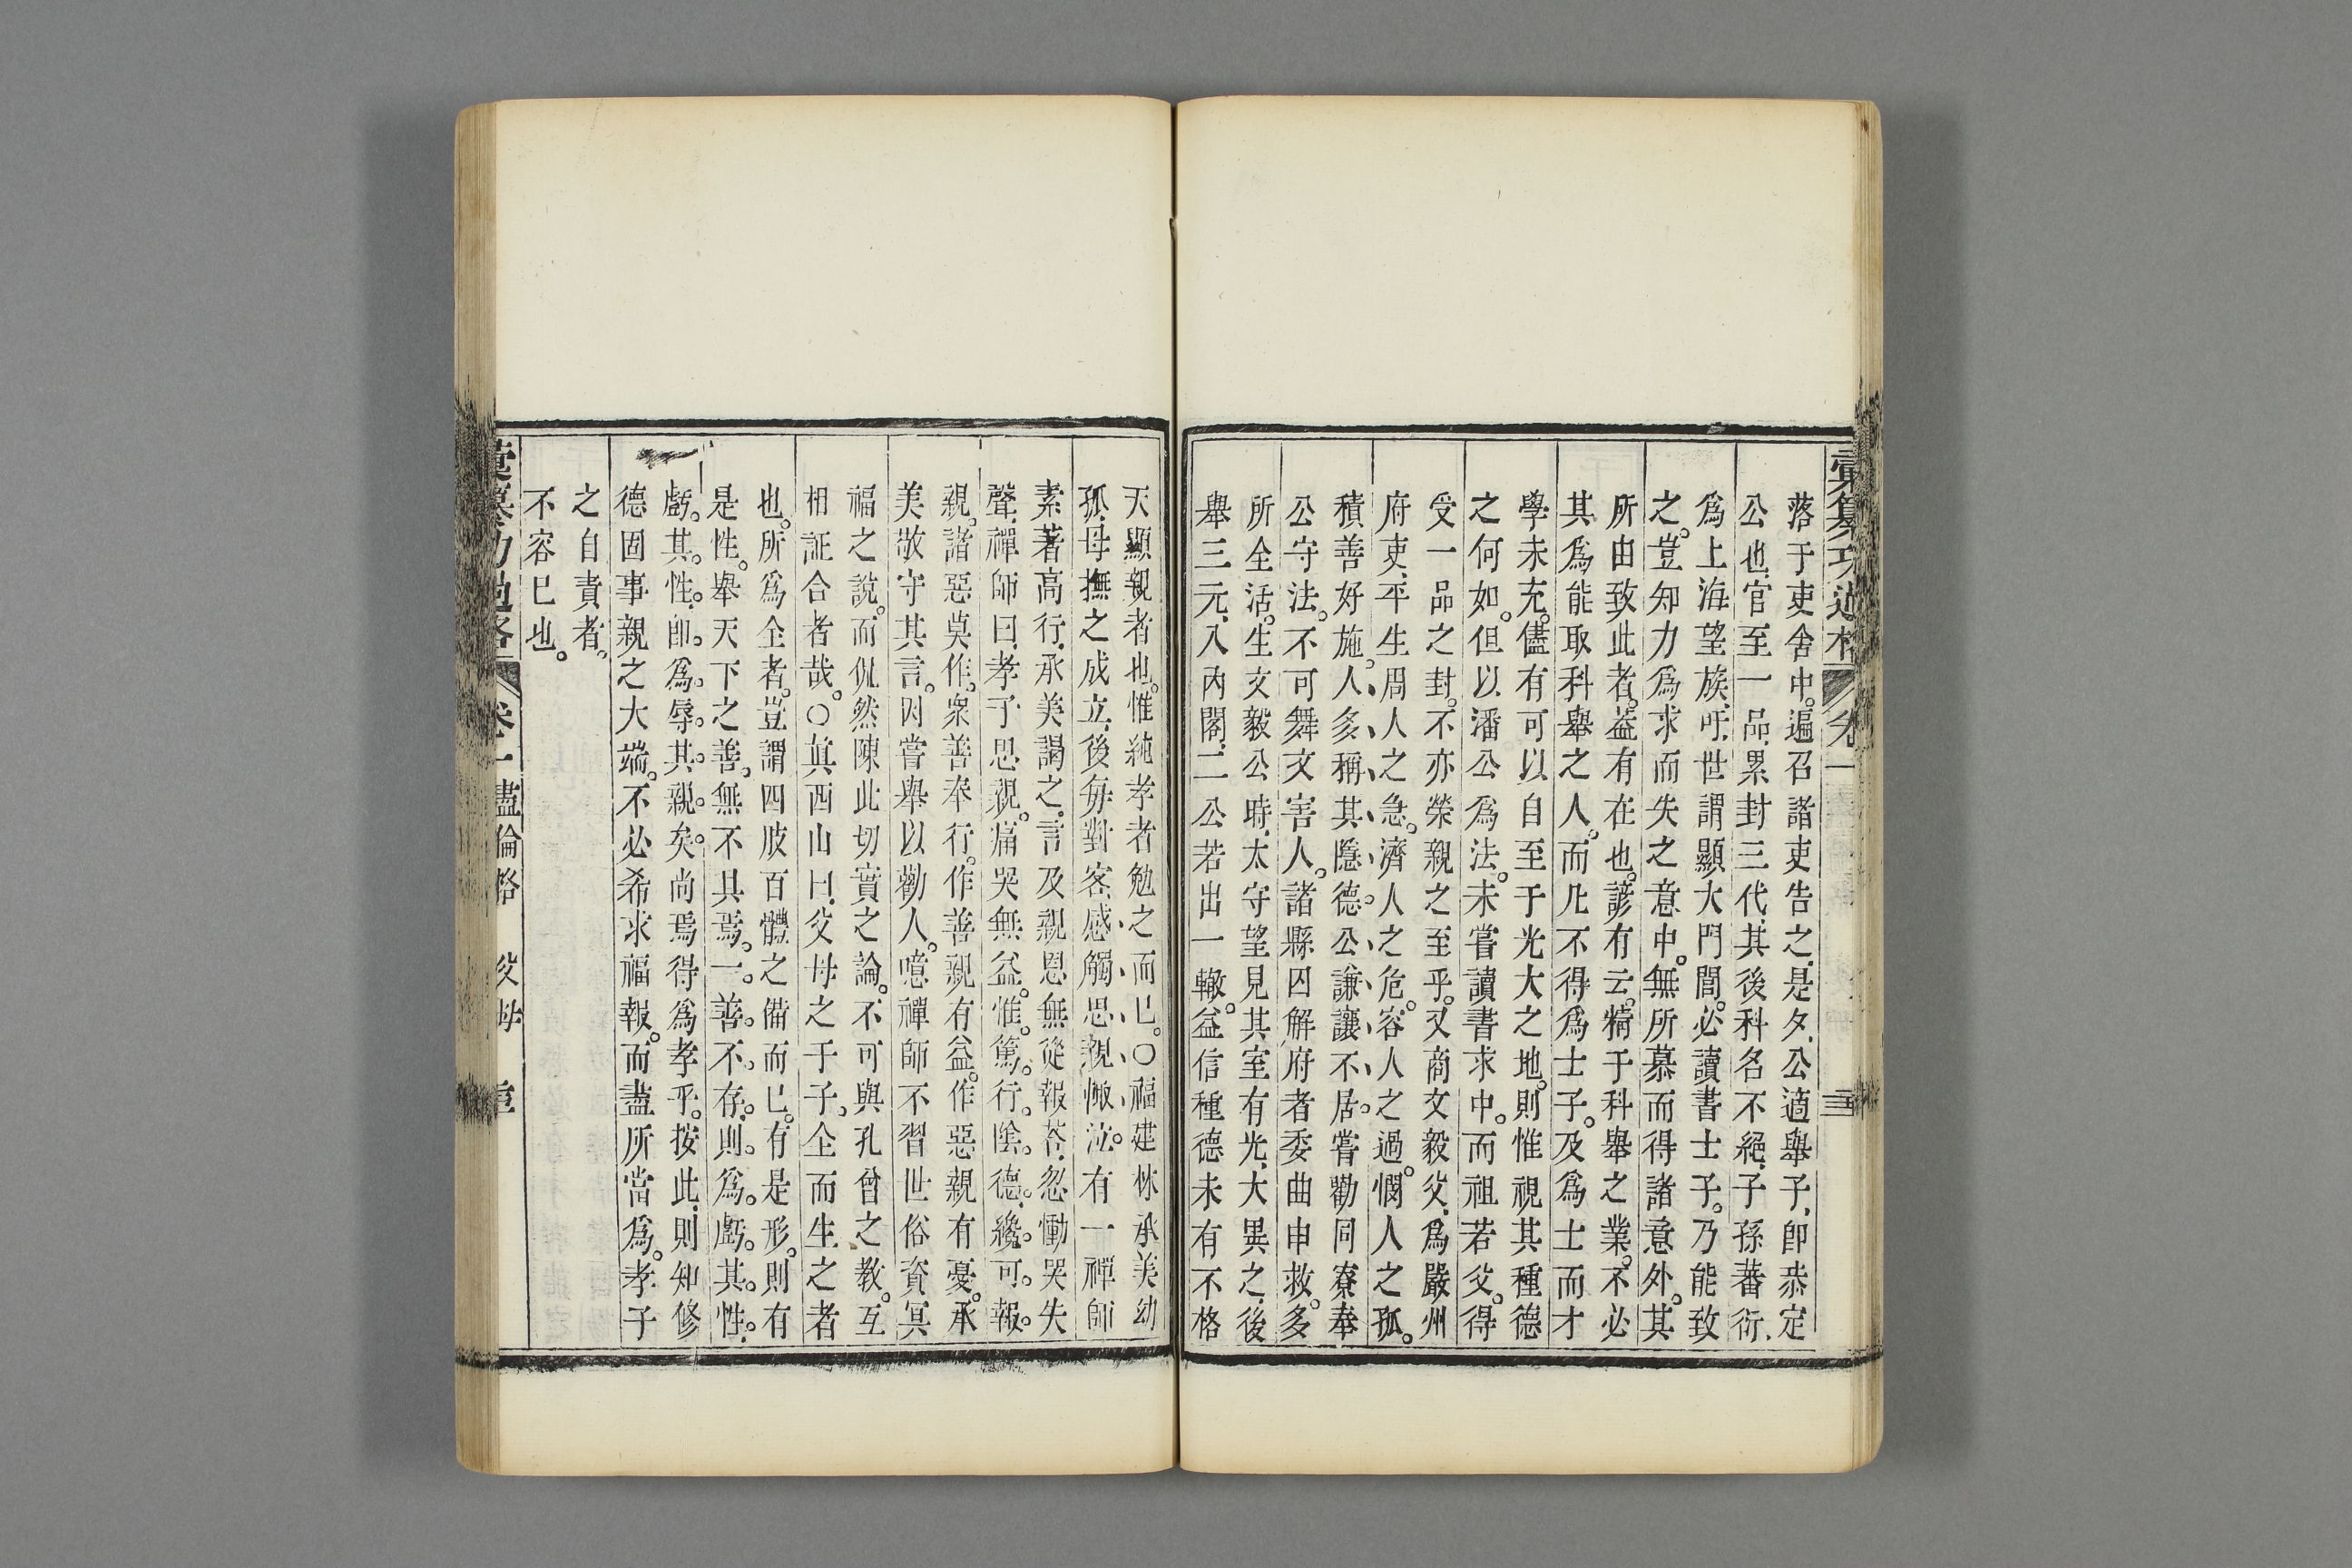 彙纂功過格 卷一
落于吏舍中。遍召諸吏告之。是夕、公適舉子、卽恭定
公也、官至一品、累封三代、其後科名不絕、子孫蕃衍、
爲上海望族、吁、世謂顯大門閭。必讀書士子。乃能致
之。豈知力爲求而失之意中。無所慕而得諸意外。其
所由致此者。益有在也。諺有云。精于科舉之業。不必
其爲能取科舉之人。而凡不得爲士子。及爲士而才
學未充。儘有可以自至于光大之地。則惟視其種德
之何如。但以潘公爲法。未嘗讀書求中。而祖若父。得
受一品之封。不亦榮親之至乎。又商文毅父、爲嚴州
府吏、平生周人之急。濟人之危。容人之過。憫人之孤。
積善好施。人多稱其隱德。公謙讓不居。嘗勸同寮奉
公守法。不可舞文害人。諸縣囚解府者委曲申救。多
所全活。生文毅公時、太守望見其室有光、大異之、後
舉三元、入內閣、二公若出一轍。益信種德未有不格
天顯親者也。惟純孝者勉之而已。○福建林承美幼
孤、母撫之成立、後每對客感觸思親慟泣。有一禪師
素著高行、承美謁之、言及親恩無從報荅、忽慟哭失
聲、禪師曰、孝子思親。痛哭無益。惟。篤。行。陰。德。纔。可。報。
親。諸惡莫作。衆善奉行。作善親有益。作惡親有憂。承
美敬守其言。因嘗舉以勸人。噫禪師不習世俗資冥
福之說。而侃然陳此切實之論。不可與孔曾之教。互
相証合者哉。○眞西山曰、父母之于子。全而生之者
也。所爲全者。豈謂四肢百體之備而已。有是形。則有
是性。舉天下之善。無不具焉。一。善。不。存。則。爲。虧。其。性。
虧。其。性。卽。爲。辱。其。親。矣。尚焉得爲孝乎。按此、則知修
德固事親之大端。不必希求福報。而盡所當爲。孝子
之自責者。
不容已也。
彙纂功過格 卷一 盡倫格 父母